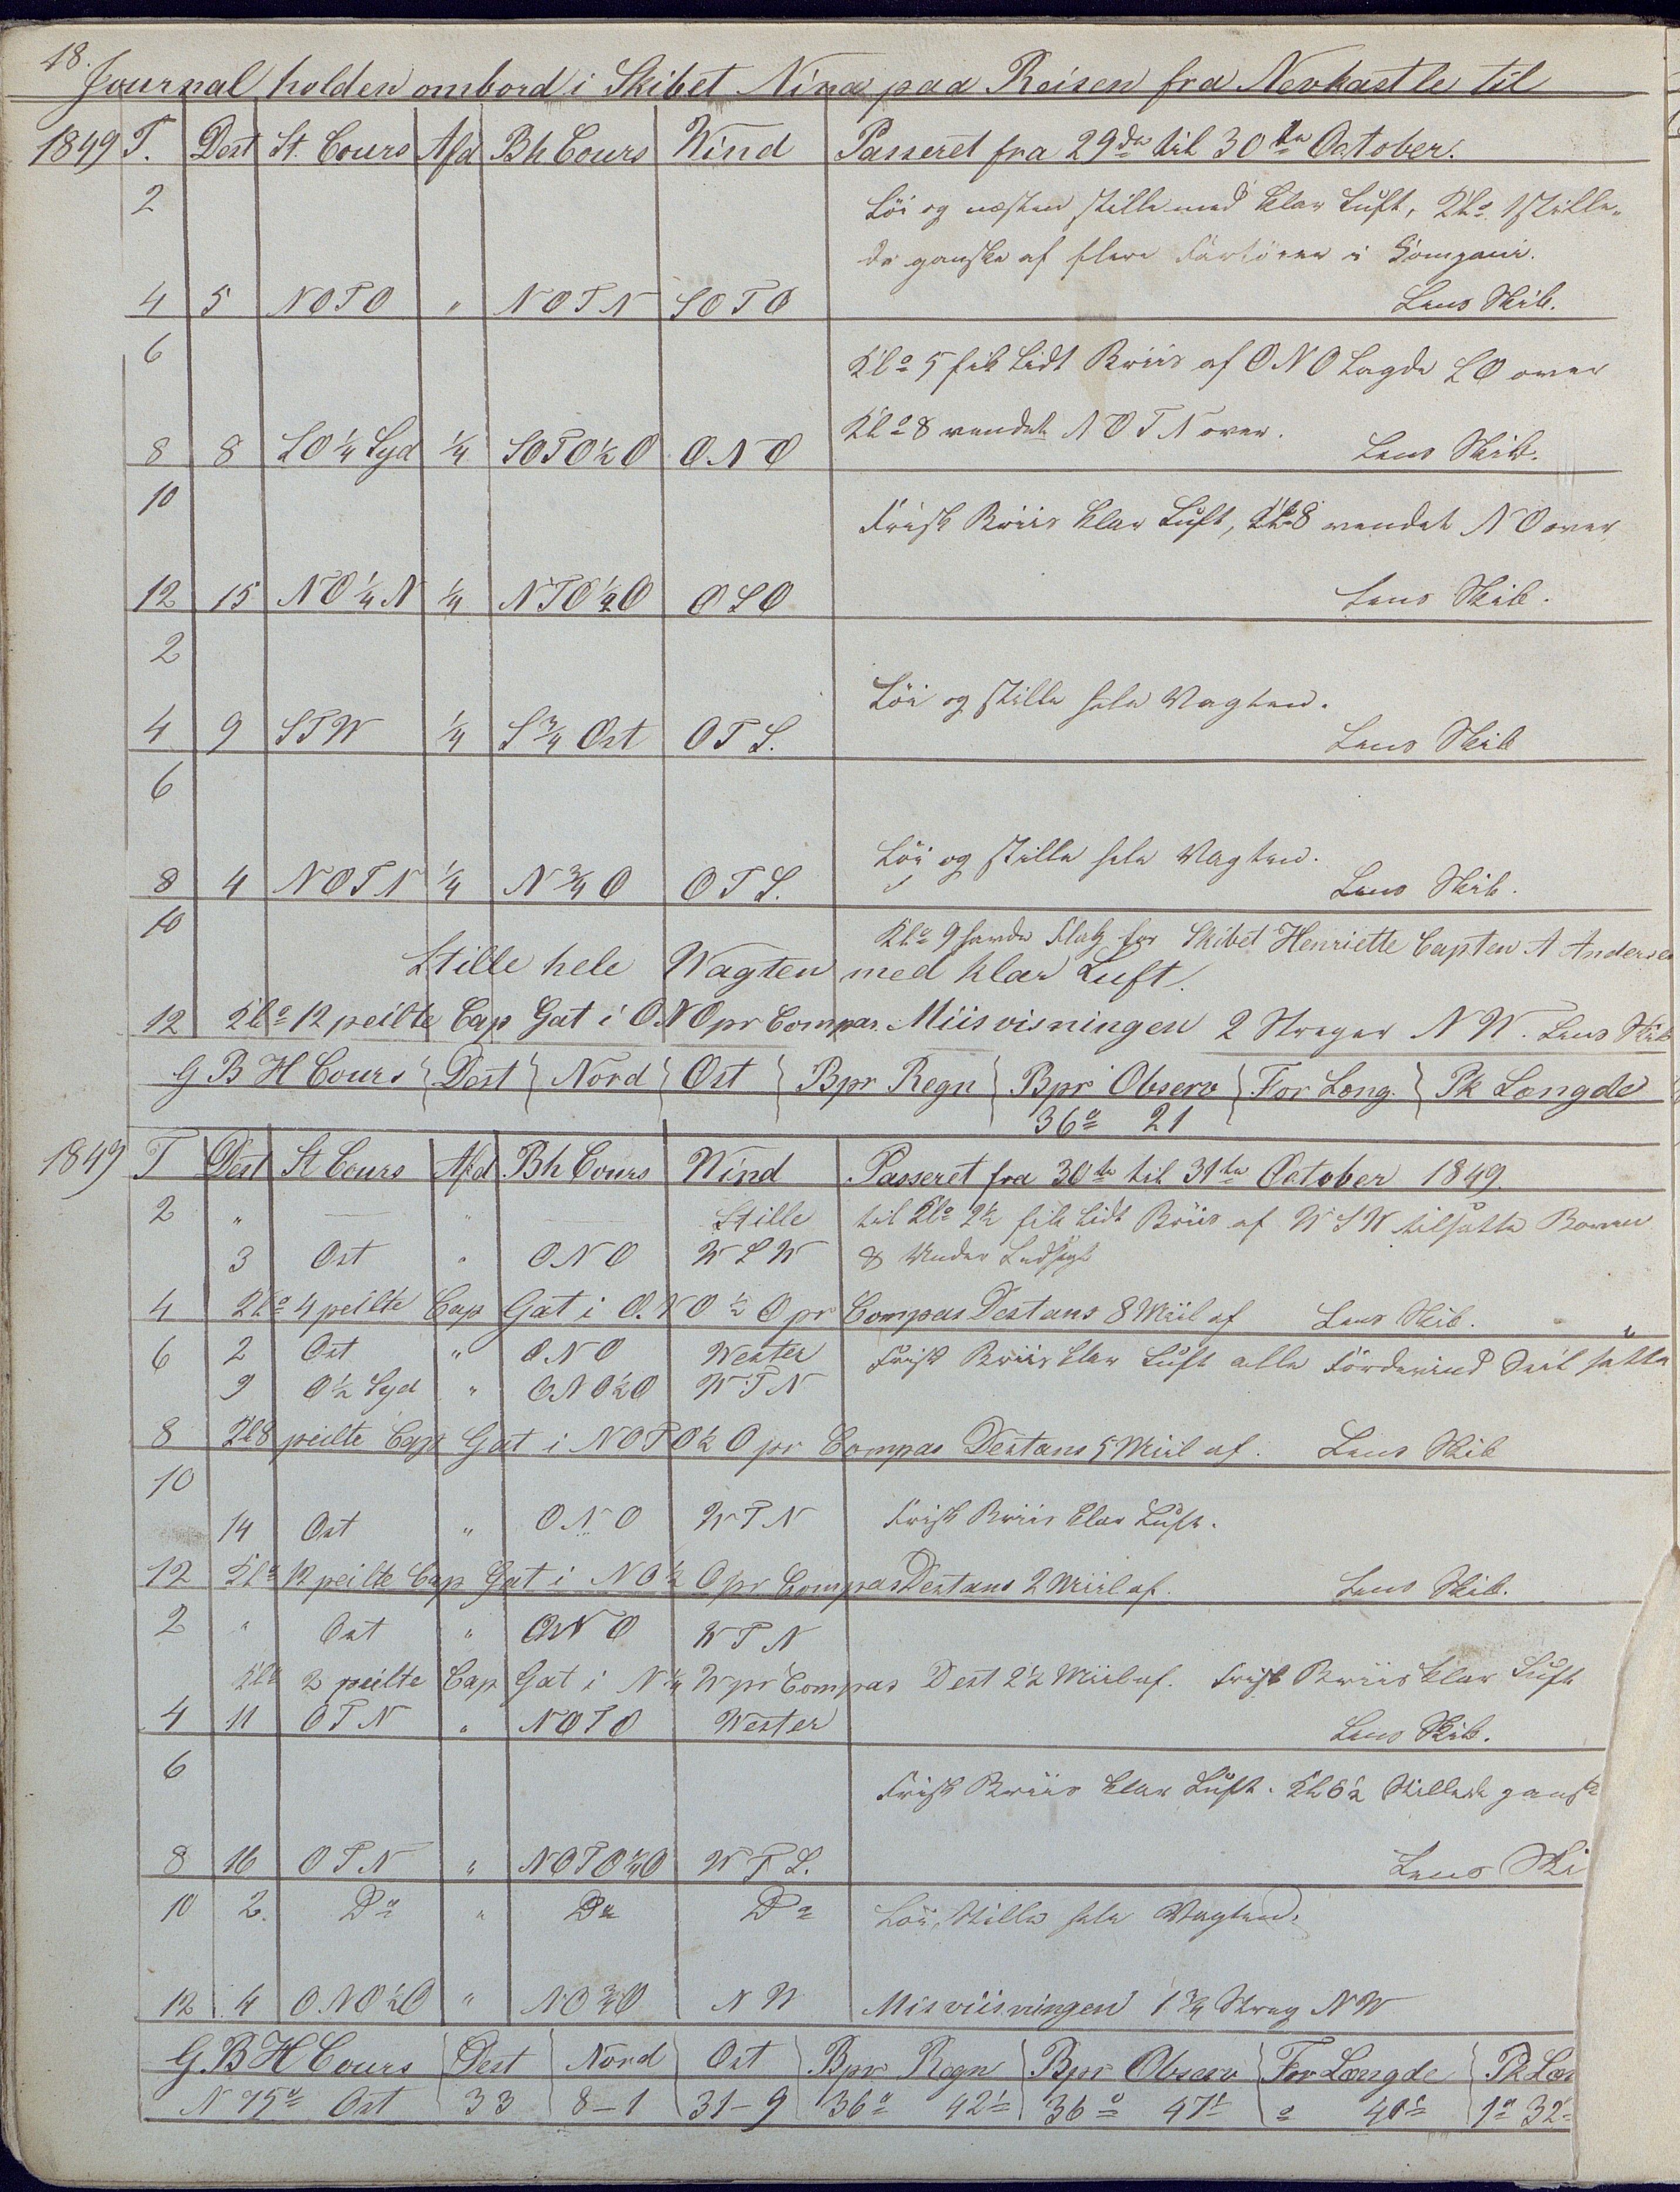 18.
Journal holden ombord i Skibet Nina paa Reisen fra Nevkastle til
1849 T. Dest St. Cours Afd Bh Cours Wind Passeret fra 29de til 30te October.
2 Löi og næsten stille med klar Luft, Klo 1 stille-
de ganske af flere Fartöier i Compani.
4 5 NOTO " NOTN SOTO Lens Skib.
6 Klo 5 fik lidt Briis af ONO Lagde SO over
Klo 8 vendet NOTN over.
8 8 SO ¼ Syd ¼ SOTO ½ O ONO Lens Skib.
10 Frisk Briis klar Luft, Klo 8 vendet NO over
12 15 NO ¼ N ¼ NTO ½ O OSO Lens Skib.
2 Löi og stille hele Vagten.
4 9 STW ¼ S ¾ Ost OTS. Lens Skib
6 Löi og stille hele Vagten.
8 4 NOTN ¼ N ¾ O OTS. Lens Skib.
10 Klo 9 havde Flag for Skibet Henriette Capten A Andersen
Stille hele Wagten med klar Luft.
12 Klo 12 peilte Cap Gat i O.N.O pr Compas. Miisvisningen 2 Streger NW. Lens Skib
G B H Cours Dest Nord Ost Bpr Regn Bpr Observ For Læng. Pk Længde
36° 21
1849 T Dest St Cours Afd Bh Cours Wind Passeret fra 30te til 31te October 1849.
2 " — " — Stille til Klo 2½ fik lidt Briis af WSW tilsatte Boven
3 Ost " ONO WSW & Under Ledseil
4 Klo 4 peilte Cap Gat i O.NO ½ O pr Compas Destans 8 Miil af Lens Skib.
6 2 Ost " ONO Wester Frisk Briis klar Luft alle Fördevind Seil satte
9 O ½ Syd " ONO ½ O WTN
8 Kl 8 peilte Cap Gat i NOTO ½ O pr Compas Destans 5 Miil af. Lens Skib
10
14 Ost " ONO WTN Frisk Briis klar Luft.
12 Klo 12 peilte Cap Gat i NO ½ O pr Compas Destans 2 Miil af. Lens Skib.
2 " Ost " ONO WTN
Klo 2 peilte Cap Gat i N ¼ W pr Compas Dest 2½ Miil af. Frisk Briis klar Luft
4 11 OTN " NOTO Wester Lens Skib.
6 Frisk Briis klar Luft. Kl 6½ Stillede ganske
8 16 OTN " NOTO ¼ O WTS. Lens Ski
10 2. Do " Do Do Löi, Stille hele Vagten.
12 4 ONO ½ O " NO ¾ O NW Misviisningen 1 ¾ Streg NW
G.B H Cours Dest Nord Ost Bpr Regn Bpr Observ For Længde Pk Læn
N 75° Ost 33 8–1 31–9 36° 42' 36° 47' ° 40' 1° 32'